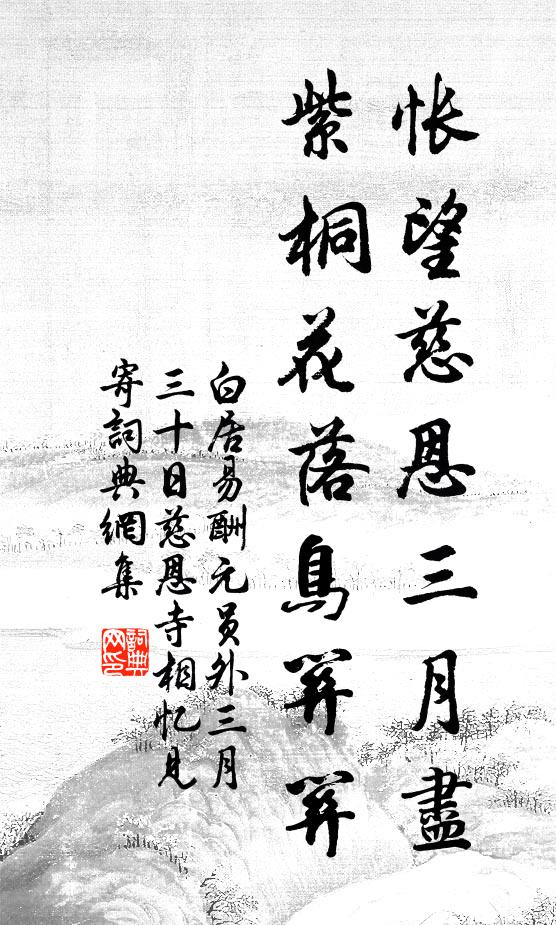 悵望慈恩三月盡
紫桐花落鳥關關
白居易酬元員外三月
三十日慈恩寺相忆見
寄詞典網集
詞典
网印